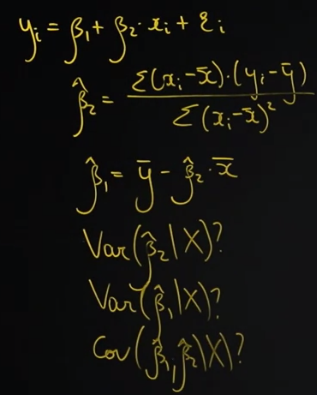 yᵢ = β₁ + β₂·xᵢ + εᵢ
β̂₂ = Σ(xᵢ-x̄)·(yᵢ-ȳ) / Σ(xᵢ-x̄)²
β̂₁ = ȳ - β̂₂·x̄
Var(β̂₂|X)?
Var(β̂₁|X)?
Cov(β̂₁,β̂₂|X)?